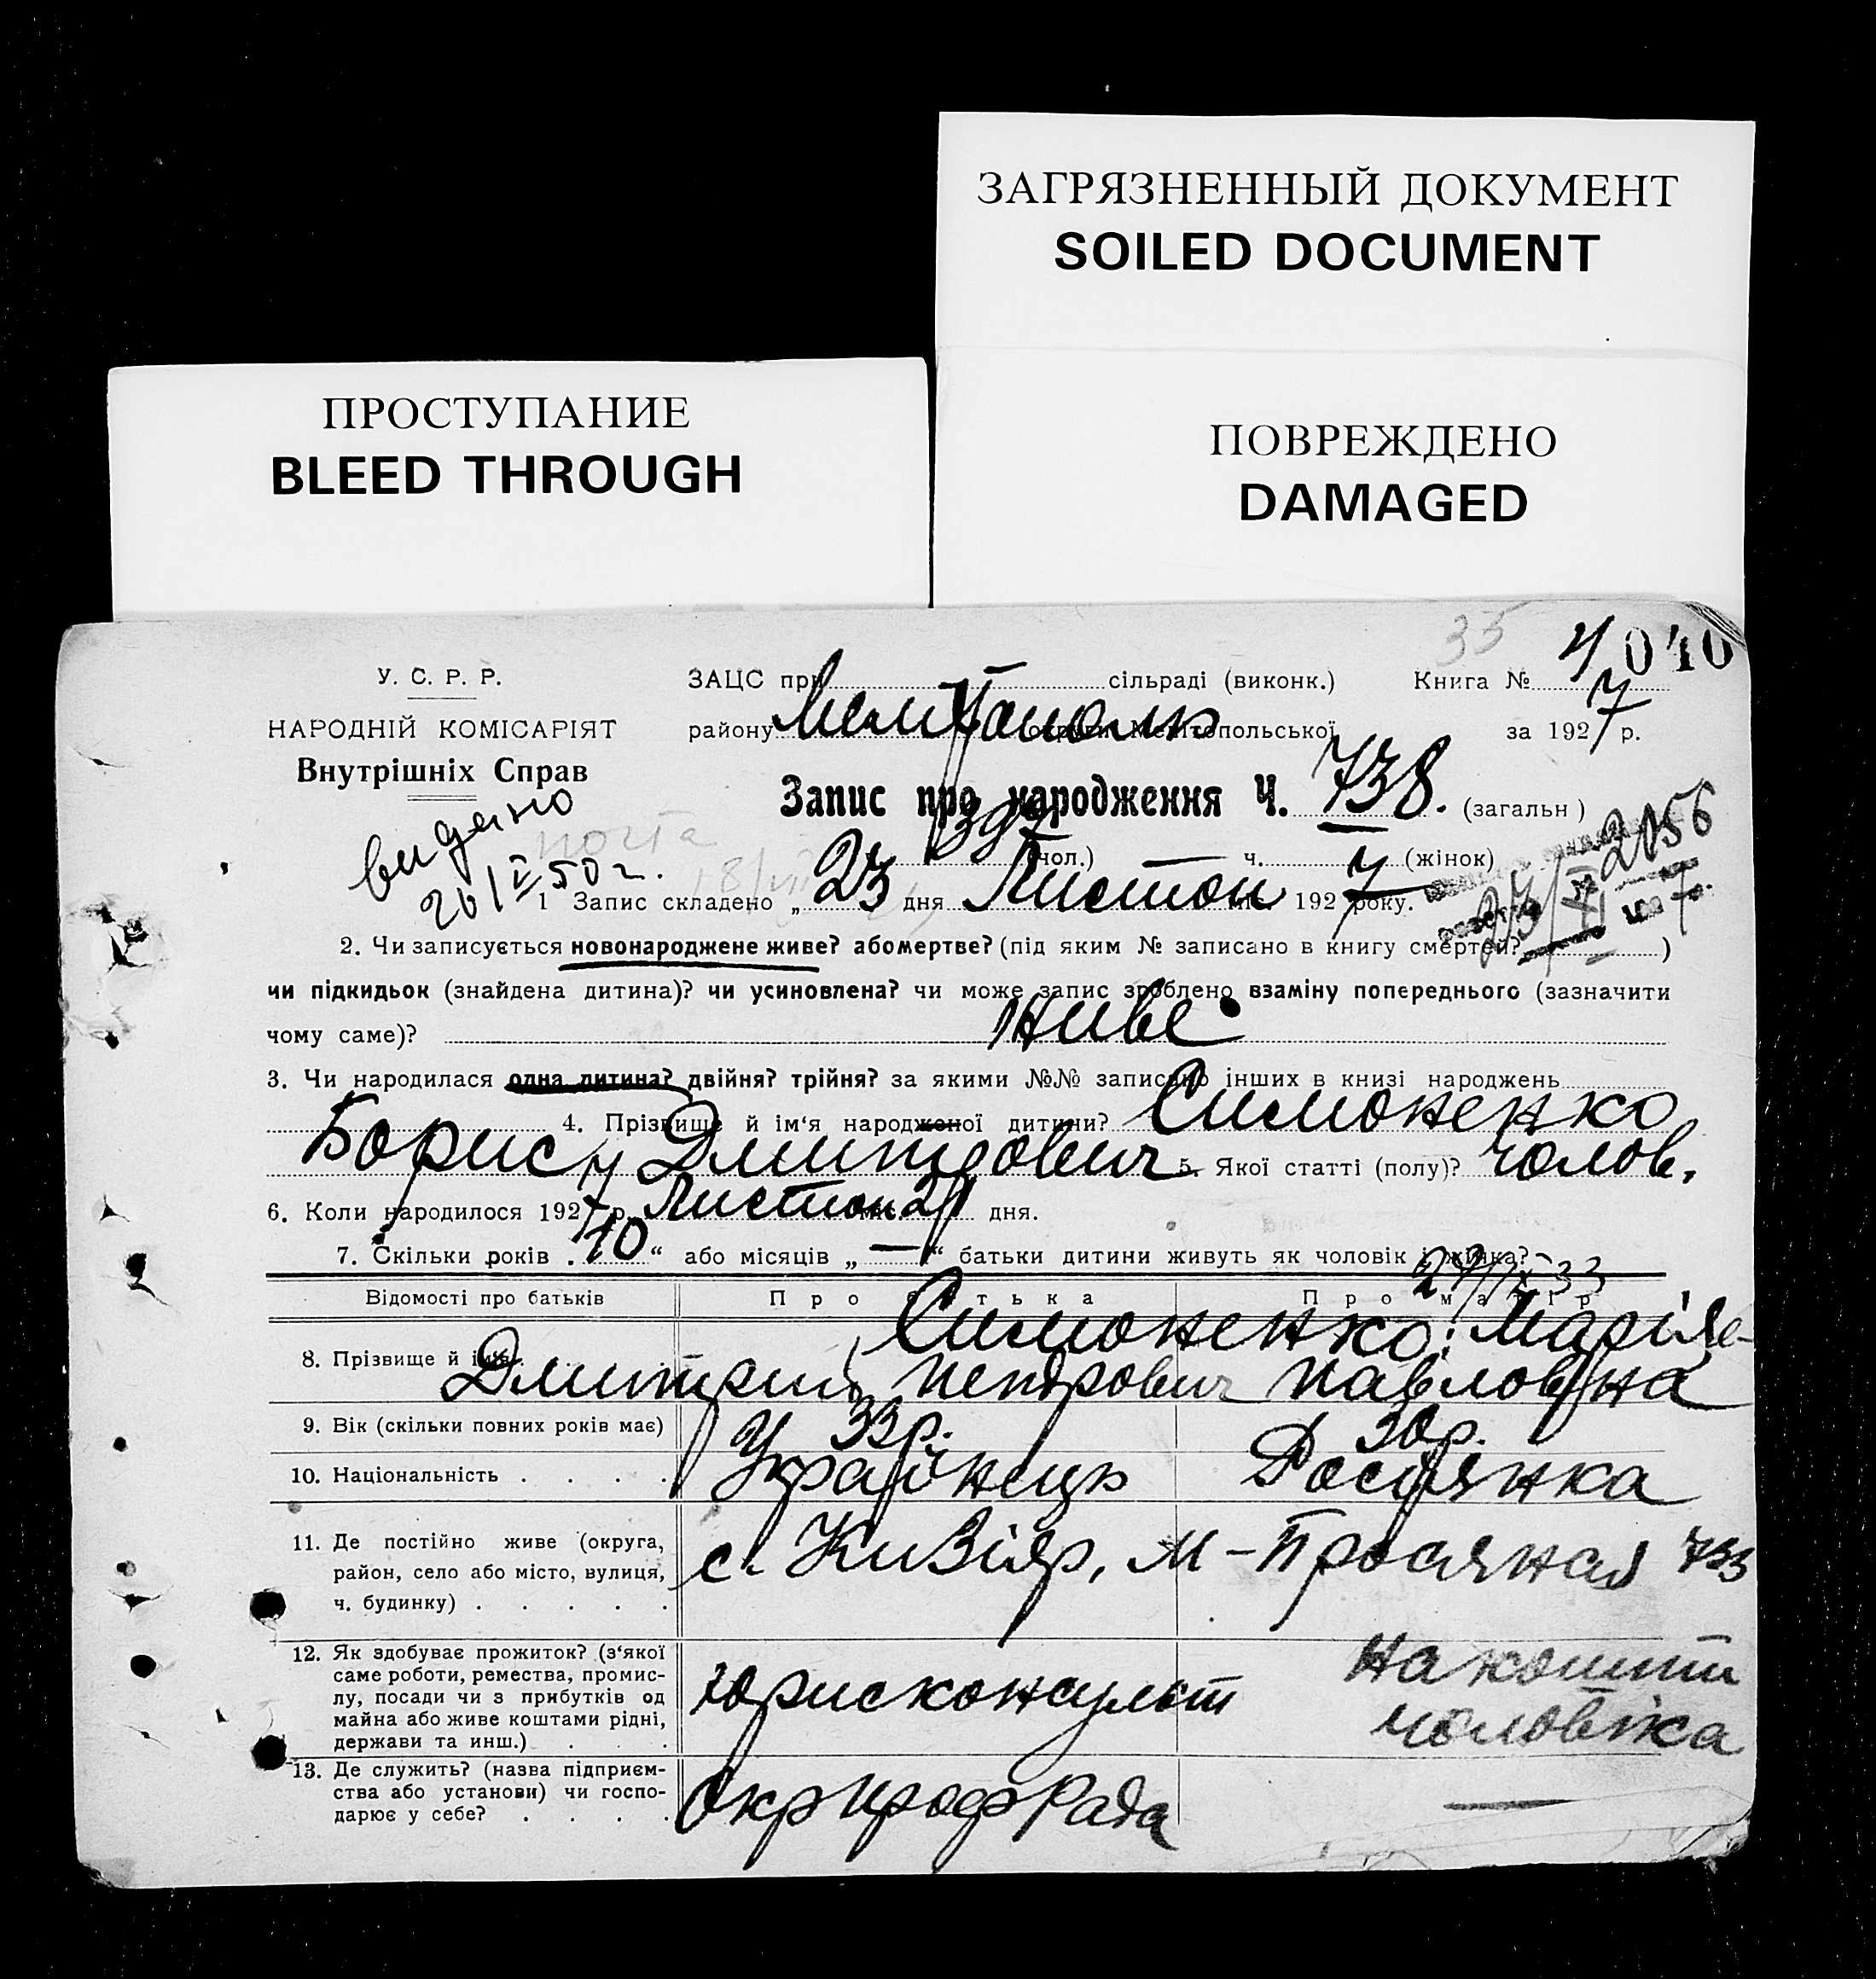 ЗАГРЯЗНЕННЫЙ ДОКУМЕНТ
SOILED DOCUMENT
ПРОСТУПАНИЕ
BLEED THROUGH
ПОВРЕЖДЕНО
DAMAGED
35 4 040
У. С. Р. Р.
НАРОДНІЙ КОМІСАРІЯТ
Внутрішніх Справ
видано
26/V 50 г.
почта
ЗАЦС при сільраді (виконк.) Книга №
району Мелітополь округи Мелітопольської за 1927 р.
Запис про народження Ч. 738. (загальн)
397 (чол.) — ч. (жінок)
2156
1 Запис складено „ 23 дня Листоп 1927 року.
2. Чи записується новонароджене живе? або мертве? (під яким № записано в книгу смертей? )
чи підкидьок (знайдена дитина)? чи усиновлена? чи може запис зроблено взаміну попереднього (зазначити
чому саме)? живе
3. Чи народилася одна дитина? двійня? трійня? за якими №№ записано інших в книзі народжень
4. Прізвище й ім'я народженої дитини? Симоненко
Борис Дмитрович 5. Якої статті (полу)? чолов.
6. Коли народилося 1927 р. Листоп міс. дня.
7. Скільки років „ 10 “ або місяців „ — “ батьки дитини живуть як чоловік і жінка?
Відомості про батьків Про батька Про матір
8. Прізвище й ім'я Симоненко: Марія
Дмитрий Петрович Павловна
9. Вік (скільки повних років має) 33 р. 30 р.
10. Національність . . . . Українець Росіянка
11. Де постійно живе (округа,
район, село або місто, вулиця,
ч. будинку) . . . . .
с. Кизіяр, М-Просяная 733
12. Як здобуває прожиток? (з'якої
саме роботи, ремества, промис-
лу, посади чи з прибутків од
майна або живе коштами рідні,
держави та инш.) . . .
Юрисконсульт
На кошти
чоловіка
13. Де служить? (назва підприєм-
ства або установи) чи госпо-
дарює у себе? . . . .
ОкрпрофРада —